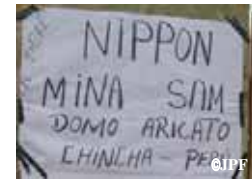 NIPPON
MINA SAM
DOMO ARICATO
CHINCHA - PERU
©JPF